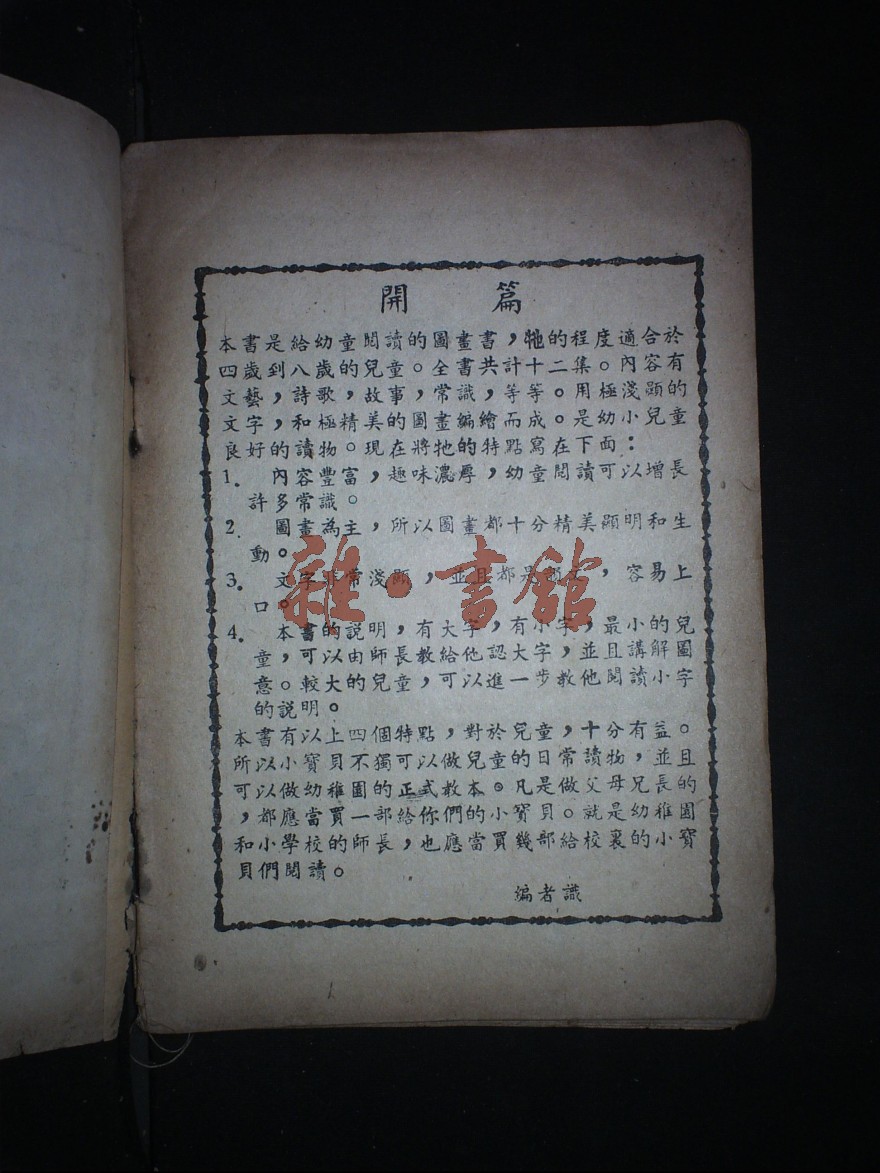 開篇
本書是給幼童閱讀的圖畫書，牠的程度適合於
四歲到八歲的兒童。全書共計十二集。內容有
文藝，詩歌，故事，常識，等等。用極淺顯的
文字，和極精美的圖畫編繪而成。是幼小兒童
良好的讀物。現在將牠的特點寫在下面：
1. 內容豐富，趣味濃厚，幼童閱讀可以增長
許多常識。
2. 圖畫為主，所以圖畫都十分精美顯明和生
動。
3. 文字非常淺顯，並且都是，容易上
口。
4. 本書的說明，有大字，有小字，最小的兒
童，可以由師長教給他認大字，並且講解圖
意。較大的兒童，可以進一步教他閱讀小字
的說明。
本書有以上四個特點，對於兒童，十分有益。
所以小寶貝不獨可以做兒童的日常讀物，並且
可以做幼稚園的正式教本。凡是做父母兄長的
，都應當買一部給你們的小寶貝。就是幼稚園
和小學校的師長，也應當買幾部給校裏的小寶
貝們閱讀。
編者識
雜·書館